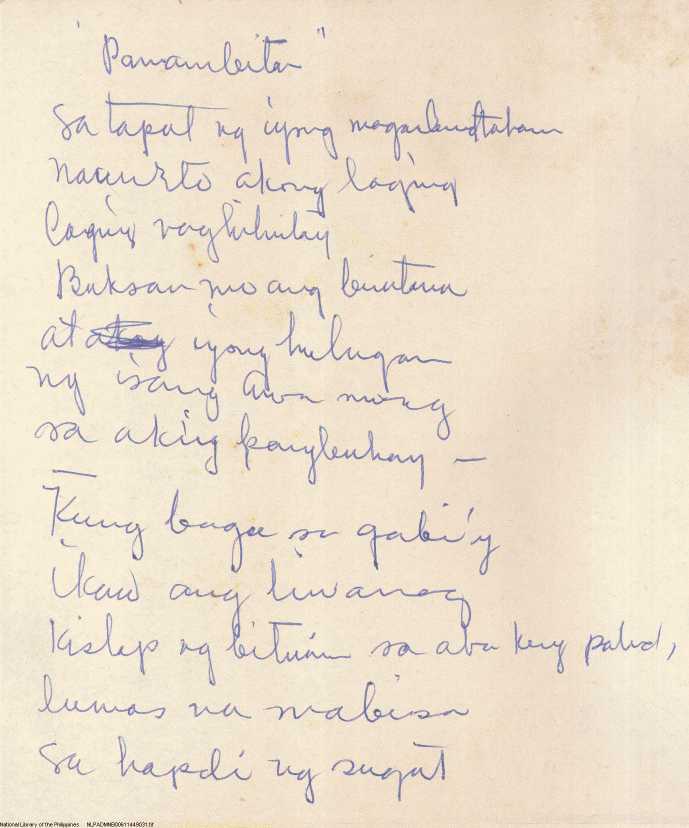 "Panambitan"
Sa tapat ng iyong
Narito akong laging
Laging naghihintay
Buksan mo ang bintana
at iyong hulugan
ng isang awa mong
sa aking pangbuhay —
Kung baga sa gabi'y
Ikaw ang liwanag
Kislap ng bituin sa aba kung palad,
lunas na mabisa
sa hapdi ng sugat
National Library of the Philippines